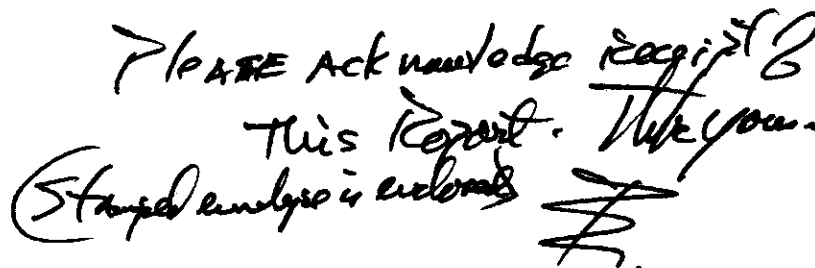 Please Acknowledge Receipt of
This Report. Thank you.
(Stamped envelope is enclosed)